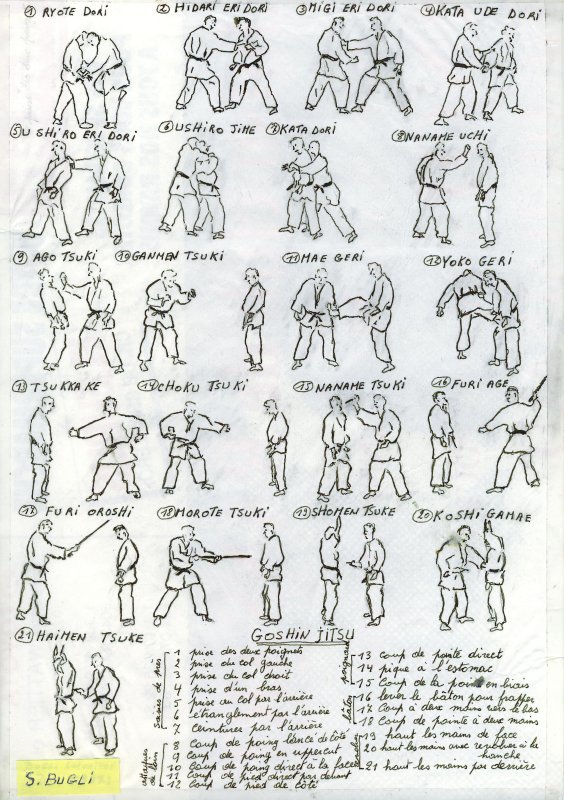 1 RYOTE DORI
2 HIDARI ERI DORI
3 MIGI ERI DORI
4 KATA UDE DORI
5 USHIRO ERI DORI
6 USHIRO JIME
7 KATA DORI
8 NANAME UCHI
9 AGO TSUKI
10 GANMEN TSUKI
11 MAE GERI
12 YOKO GERI
13 TSUKKAKE
14 CHOKU TSUKI
15 NANAME TSUKI
16 FURI AGE
17 FURI OROSHI
18 MOROTE TSUKI
19 SHOMEN TSUKE
20 KOSHI GAMAE
21 HAIMEN TSUKE
GOSHIN JITSU
saisies de près
1 prise des deux poignets
2 prise du col gauche
3 prise du col droit
4 prise d'un bras
5 prise au col par l'arrière
6 étranglement par l'arrière
7 ceinturer par l'arrière
attaques de loin
8 Coup de poing lancé de côté
9 Coup de poing en uppercut
10 Coup de poing direct à la face
11 Coup de pied direct par devant
12 Coup de pied de côté
poignard
13 coup de pointe direct
14 pique à l'estomac
15 Coup de la pointe en biais
bâton
16 lever le bâton pour frapper
17 Coup à deux mains vers le bas
18 Coup de pointe à deux mains
19 haut les mains de face
20 haut les mains avec revolver à la hanche
21 haut les mains par derrière
S. BUGLI